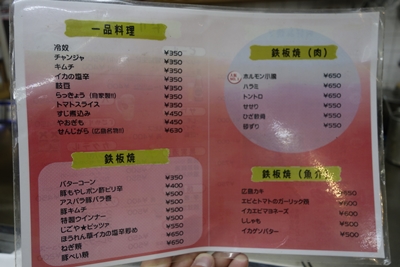 一品料理
冷奴 ¥350
チャンジャ ¥350
キムチ ¥350
イカの塩辛 ¥350
枝豆 ¥350
らっきょう ¥350
トマトスライス ¥350
すじ煮込み ¥450
やおぎも ¥450
せんじがら ¥630
鉄板焼
バターコーン ¥350
豚もやしポン酢ピリ辛 ¥400
アスパラ豚バラ巻 ¥500
豚キムチ ¥500
特製ウインナー ¥500
じごや★ピッツァ ¥500
ほうれん草イカの塩辛炒め ¥650
ねぎ焼 ¥650
豚ぺい焼
鉄板焼（肉）
ホルモン ¥650
ハラミ ¥650
トントロ ¥650
せせり ¥550
ひざ軟骨 ¥550
砂ずり ¥550
鉄板焼（魚介
広島カキ
エビとトマトのガーリック焼 ¥600
イカエビマヨネーズ ¥600
ししゃも ¥500
イカゲンバター ¥500